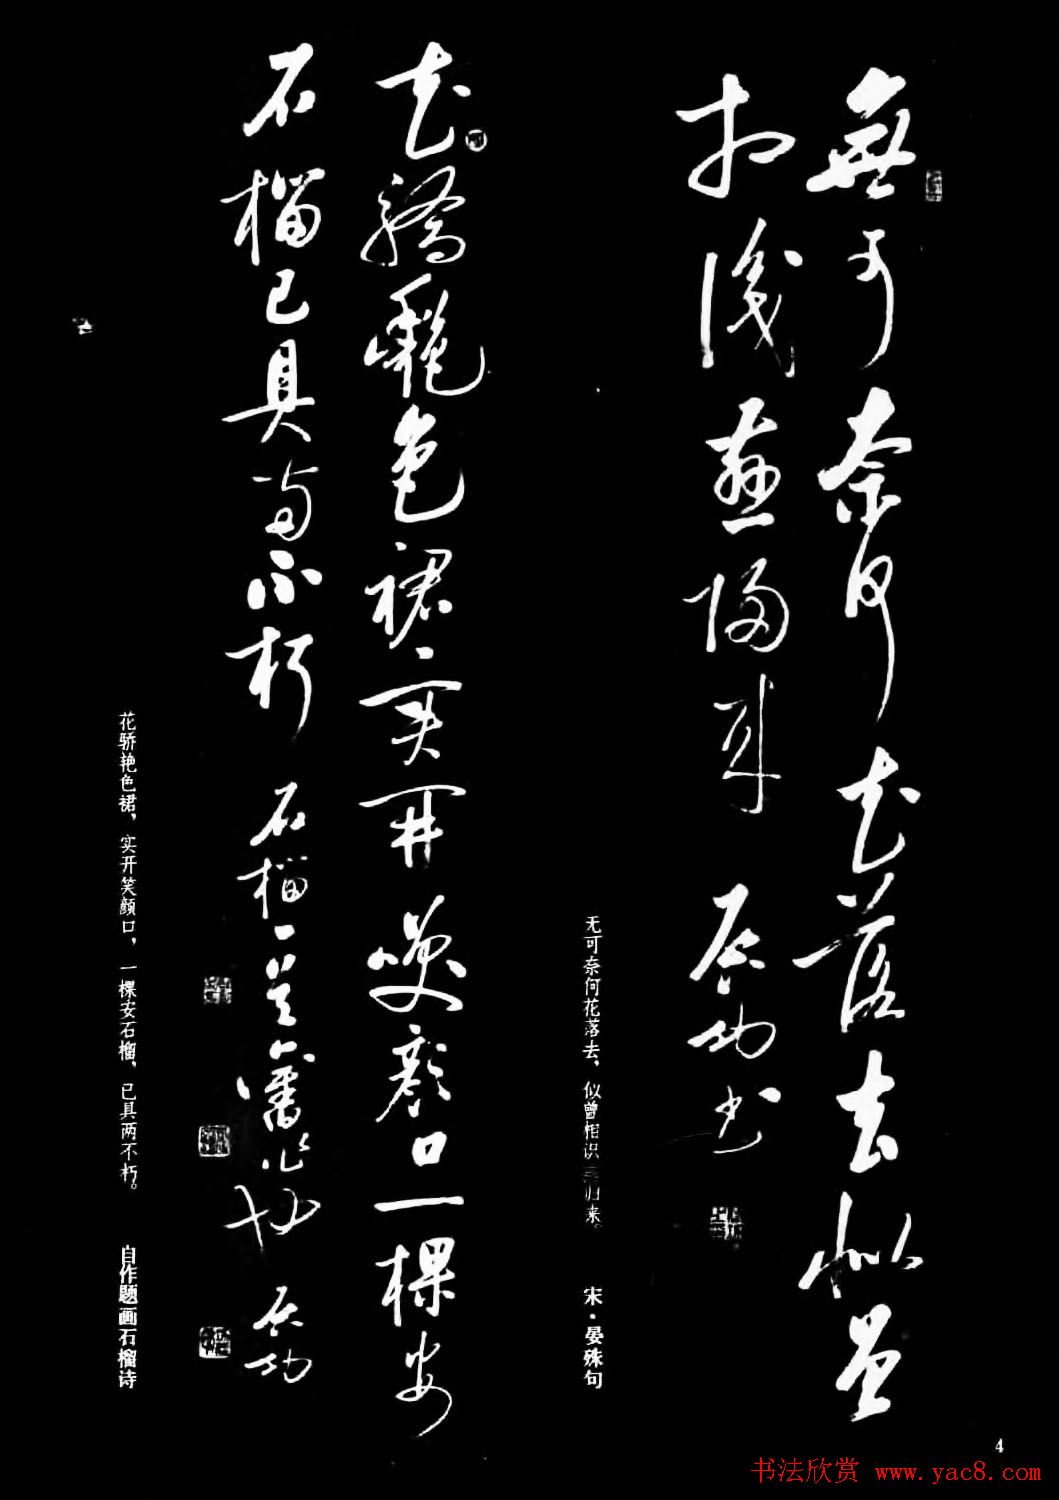 無可奈何花落去似曾
相識燕歸来
启功書
无可奈何花落去、似曾相识燕归来。
宋·晏殊句
花驕艷色裙实开笑顏口一棵安
石榴已具两不朽
石榴一首舊作
启功
花骄艳色裙、实开笑颜口，一棵安石榴、已具两不朽。
自作题画石榴诗
4
书法欣赏 www.yac8.com